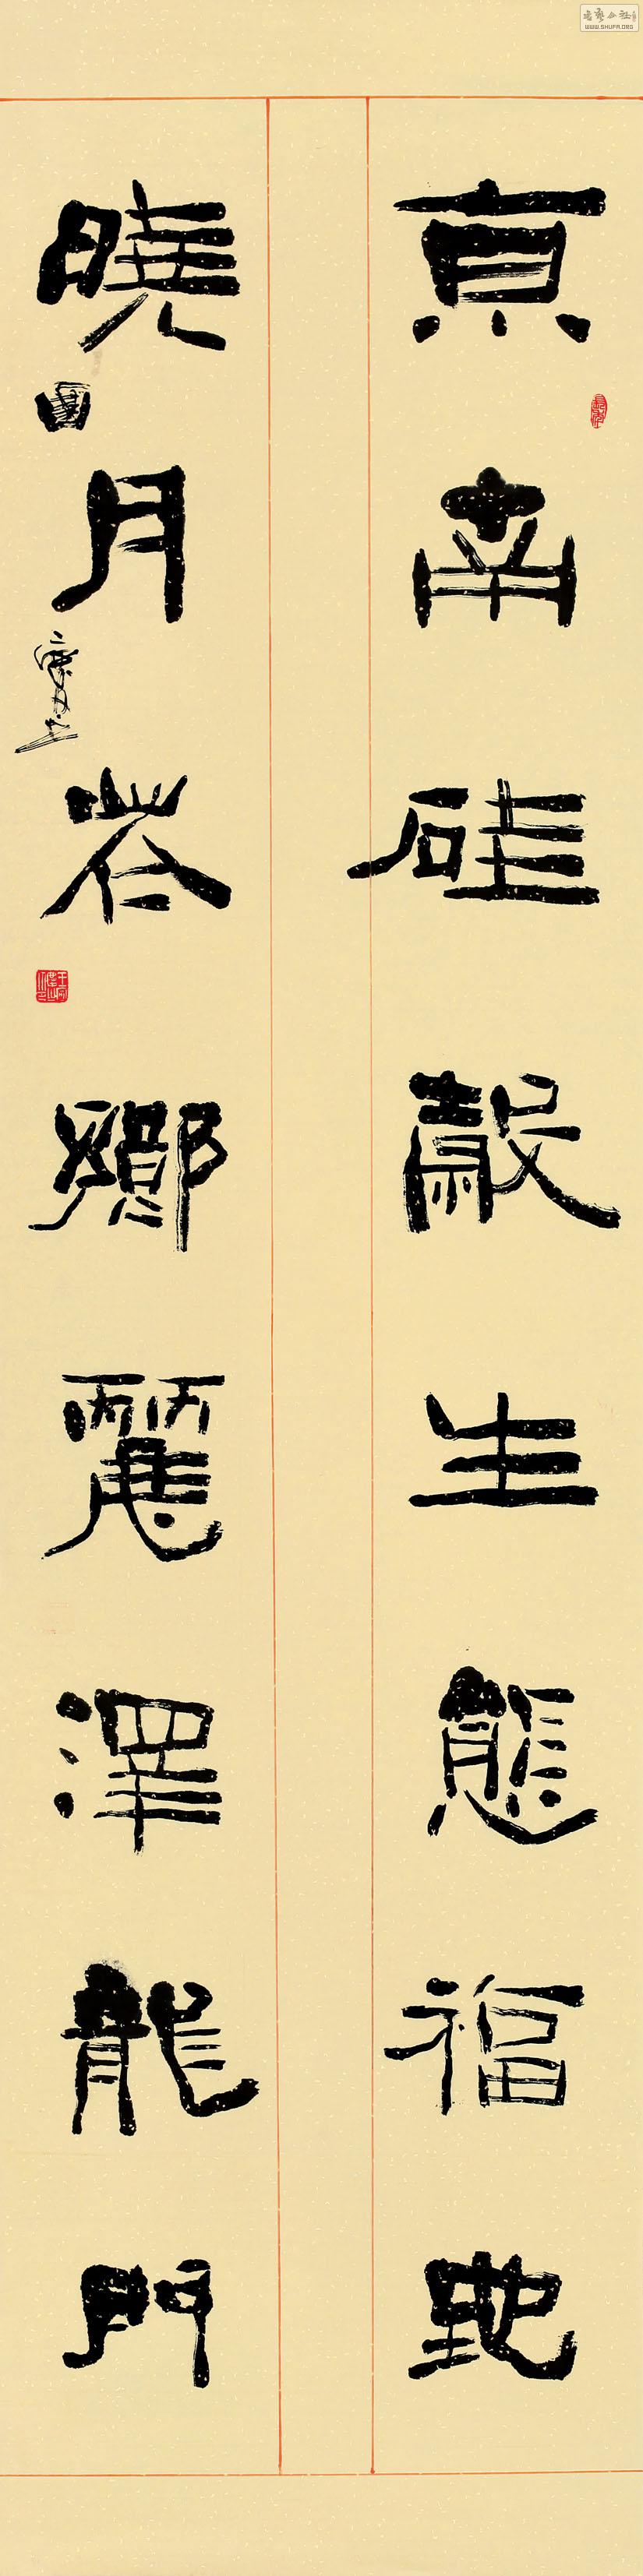 京南硅穀生態福地
曉月花鄉麗澤龍門
书艺公社
WWW.SHUFA.ORG